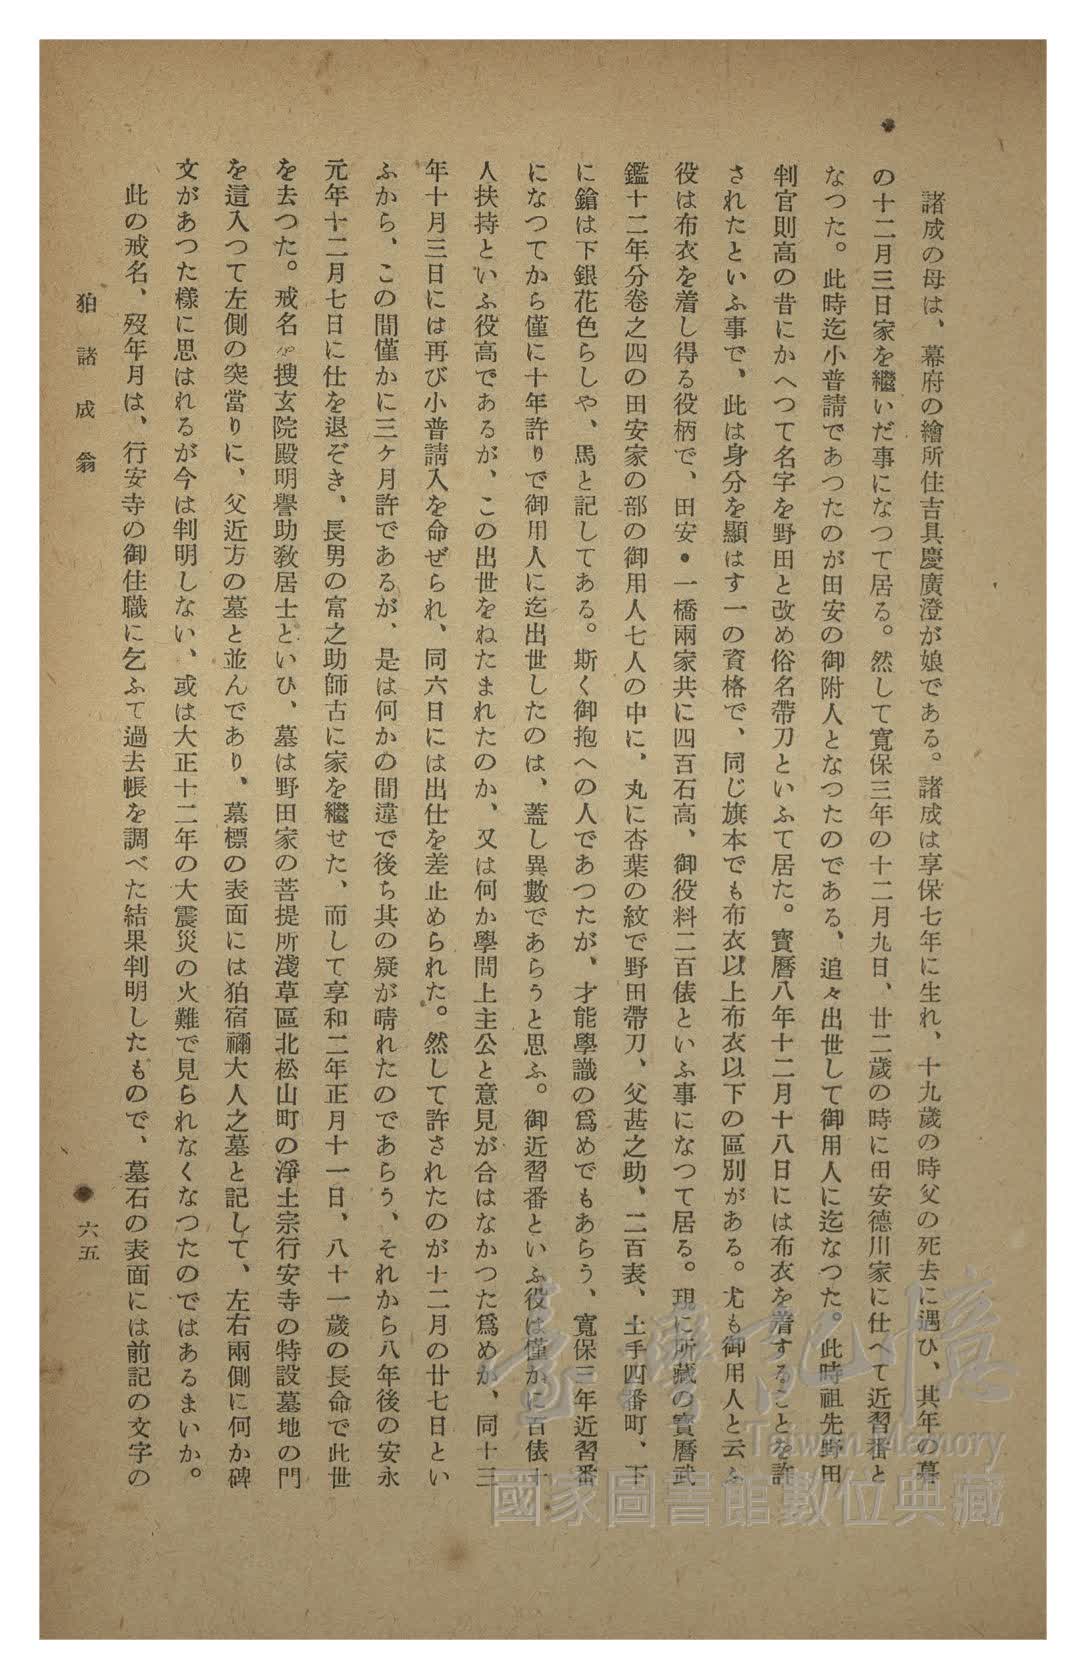 諸成の母は、幕府の繪所住吉具慶廣澄が娘である。諸成は享保七年に生れ、十九歲の時父の死去に遇ひ、其年の暮
の十二月三日家を繼いだ事になつて居る。然して寬保三年の十二月九日、廿二歲の時に田安德川家に仕へて近習番と
なつた。此時迄小普請であつたのが田安の御附人となつたのである、追々出世して御用人に迄なつた。此時祖先野田
判官則高の昔にかへつて名字を野田と改め俗名帶刀といふて居た。寶曆八年十二月十八日には布衣を着することを許
されたといふ事で、此は身分を顯はす一の資格で、同じ旗本でも布衣以上布衣以下の區別がある。尤も御用人と云ふ
役は布衣を着し得る役柄で、田安•一橋兩家共に四百石高、御役料二百俵といふ事になつて居る。現に所藏の寶曆武
鑑十二年分卷之四の田安家の部の御用人七人の中に、丸に杏葉の紋で野田帶刀、父甚之助、二百表、土手四番町、下
に鎗は下銀花色らしや、馬と記してある。斯く御抱への人であつたが、才能學識の爲めでもあらう、寬保三年近習番
になつてから僅に十年許りで御用人に迄出世したのは、蓋し異數であらうと思ふ。御近習番といふ役は僅かに百俵十
人扶持といふ役高であるが、この出世をねたまれたのか、又は何か學問上主公と意見が合はなかつた爲めか、同十三
年十月三日には再び小普請入を命ぜられ、同六日には出仕を差止められた。然して許されたのが十二月の廿七日とい
ふから、この間僅かに三ヶ月許であるが、是は何かの間違で後ち其の疑が晴れたのであらう、それから八年後の安永
元年十二月七日に仕を退ぞき、長男の富之助師古に家を繼せた、而して享和二年正月十一日、八十一歲の長命で此世
を去つた。戒名を搜玄院殿明譽助敎居士といひ、墓は野田家の菩提所淺草區北松山町の淨土宗行安寺の特設墓地の門
を這入つて左側の突當りに、父近方の墓と並んであり、墓標の表面には狛宿禰大人之墓と記して、左右兩側に何か碑
文があつた樣に思はれるが今は判明しない、或は大正十二年の大震災の火難で見られなくなつたのではあるまいか。
此の戒名、歿年月は、行安寺の御住職に乞ふて過去帳を調べた結果判明したもので、墓石の表面には前記の文字の
狛諸成翁
六五
臺灣記憶
Taiwan Memory
國家圖書館數位典藏